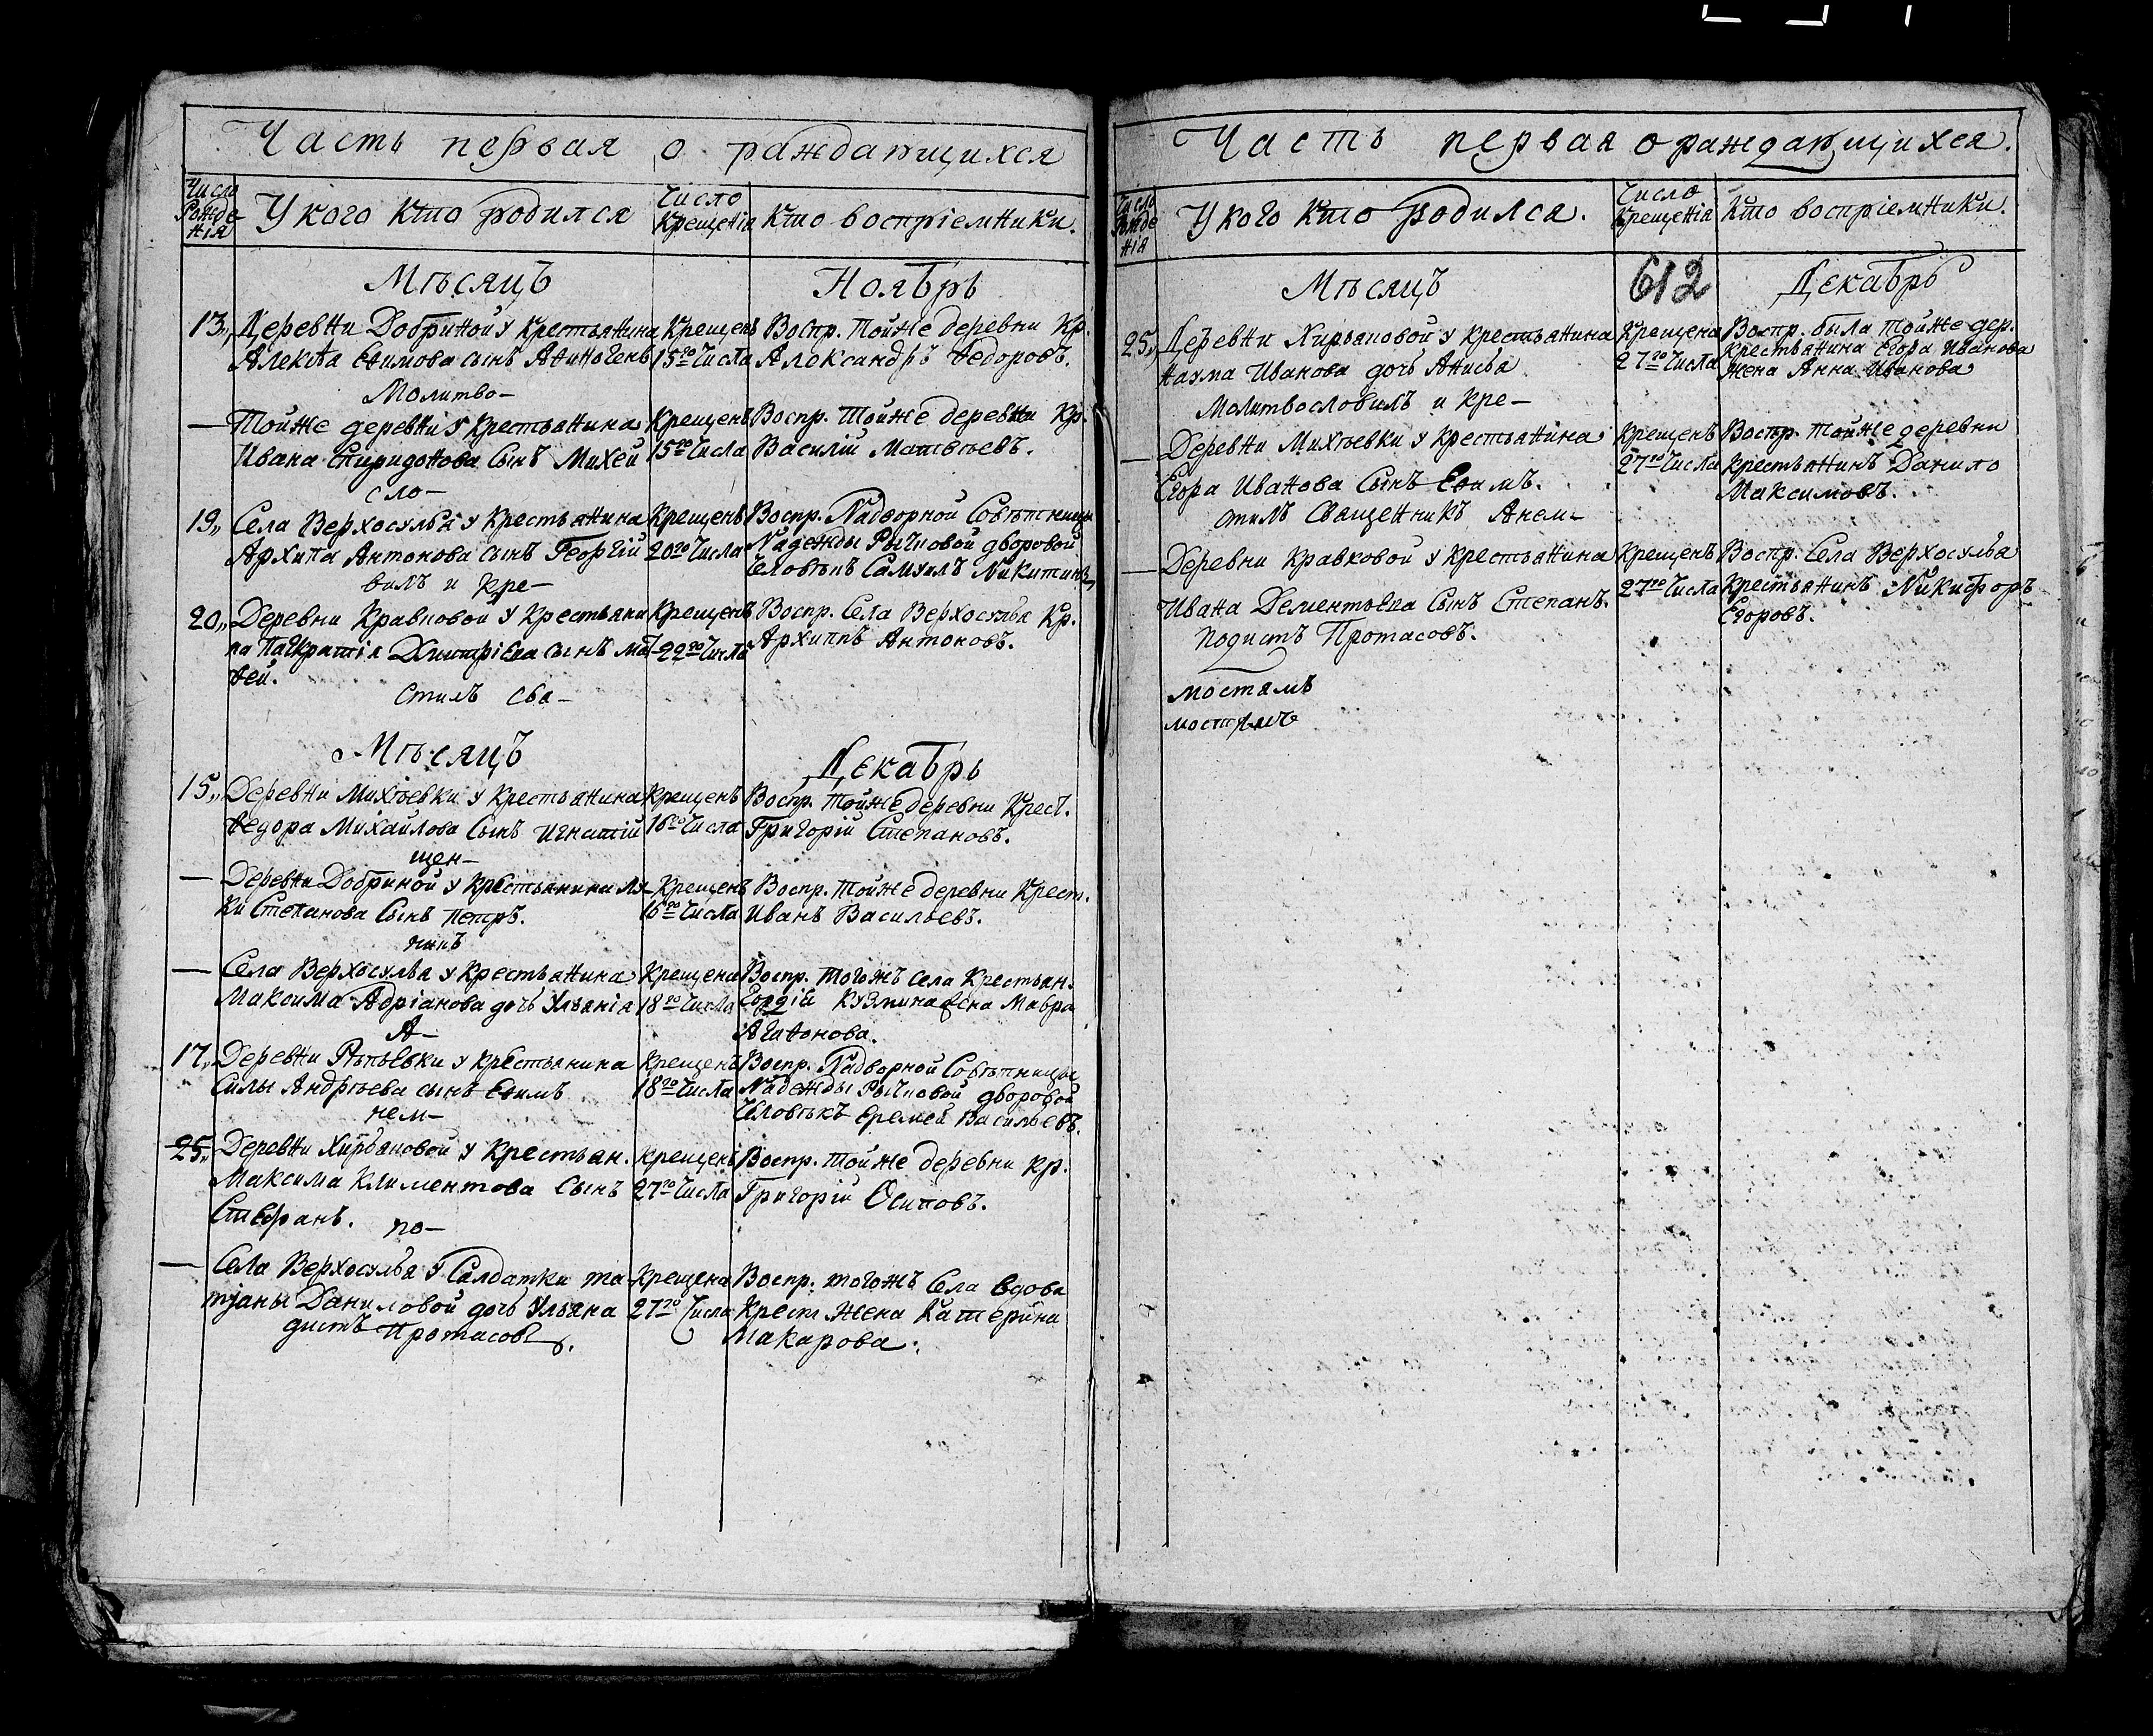 Часть первая о раждающихся
Число Рожде- нія
У кого кто родился
Число Крещенія
Кто воспріемники.
Мѣсяцъ Ноябрь
13,, Деревни Добриной у крестьянина Крещенъ Воспр. тойже деревни Кр.
Алексѣа Еѳимова сынъ Аѳиногенъ 15го Числа Александръ Ѳедоровъ.
Молитво-
— Тойже деревни у крестьянина Крещенъ Воспр. тойже деревни Кр.
Ивана Спиридонова Сынъ Михей 15го Числа Василій Матвѣевъ.
сло-
19,, Села Верхосулья у крестьянина Крещенъ Воспр. Надворной Совѣтницы
Архипа Антонова сынъ Георгій 20го Числа Надежды Рычковой дворовой
человѣкъ Самуилъ Никитинъ
вилъ и кре-
20,, Деревни Кравковой у крестьяни Крещенъ Воспр. Села Верхосулья Кр.
на Панкратія Димтріева сынъ Мат- 22го Числа Архиппъ Антоновъ.
ѳей.
стилъ Свя-
Мѣсяцъ Декабрь
15,, Деревни Михѣевки у крестьянина Крещенъ Воспр. тойже деревни Крест.
Ѳедора Михайлова Сынъ Игнатій 16го Числа Григорій Степановъ.
щен-
— Деревни Добриной у крестьянина Лу- Крещенъ Воспр. тойже деревни Крест.
ки Степанова Сынъ Петръ. 16го Числа Иванъ Васильевъ.
никъ
— Села Верхосулья у крестьянина Крещена Воспр. тогожъ села Крестьян.
Максима Адріанова дочь Ульянія 18го Числа Кузмина жена Мавра
Агаѳонова.
А-
17,, Деревни Репьевки у крестьянина Крещенъ Воспр. Надворной Совѣтницы
Силы Андрѣева сынъ Еѳимъ 18го Числа Надежды Рычковой дворовой
Человѣкъ Еремей Васильевъ.
нем-
25,, Деревни Хирьяновой у Крестьян. крещенъ Воспр. тойже деревни кр.
Максима Климентова Сынъ 27го Числа Григорій Осиповъ.
Стефанъ.
по-
— Села Верхосулья у Салдатки та- Крещена Воспр. тогожъ Села вдова
тјаны Даниловой дочь Ульяна 27го Числа Крест. жена Катерина
Макарова.
дистъ Протасовъ.
Часть первая о раждающихся.
Число Рожде нія
У кого кто родился.
Число Крещенія
Кто воспріемники.
Мѣсяцъ 612 Декабрь
25,, Деревни Хирьяновой у крестьянина Крещена Воспр. была тойже дер.
Наума Иванова дочь Анисья 27го Числа Крестьянина Егора Иванова
жена Анна Иванова
Молитвословилъ и кре-
— Деревни Михѣевки у крестьянина Крещенъ Воспр. тойже деревни
Егора Иванова Сынъ Еѳимъ. 27го Числа крестьянинъ Данило
Максимовъ.
стилъ Священникъ Анем-
— Деревни Кравковой у крестьянина Крещенъ Воспр. Села Верхосулья
Ивана Дементьева Сынъ Степанъ. 27го Числа Крестьянинъ Никифоръ
Егоровъ.
подистъ Протасовъ.
мостямъ